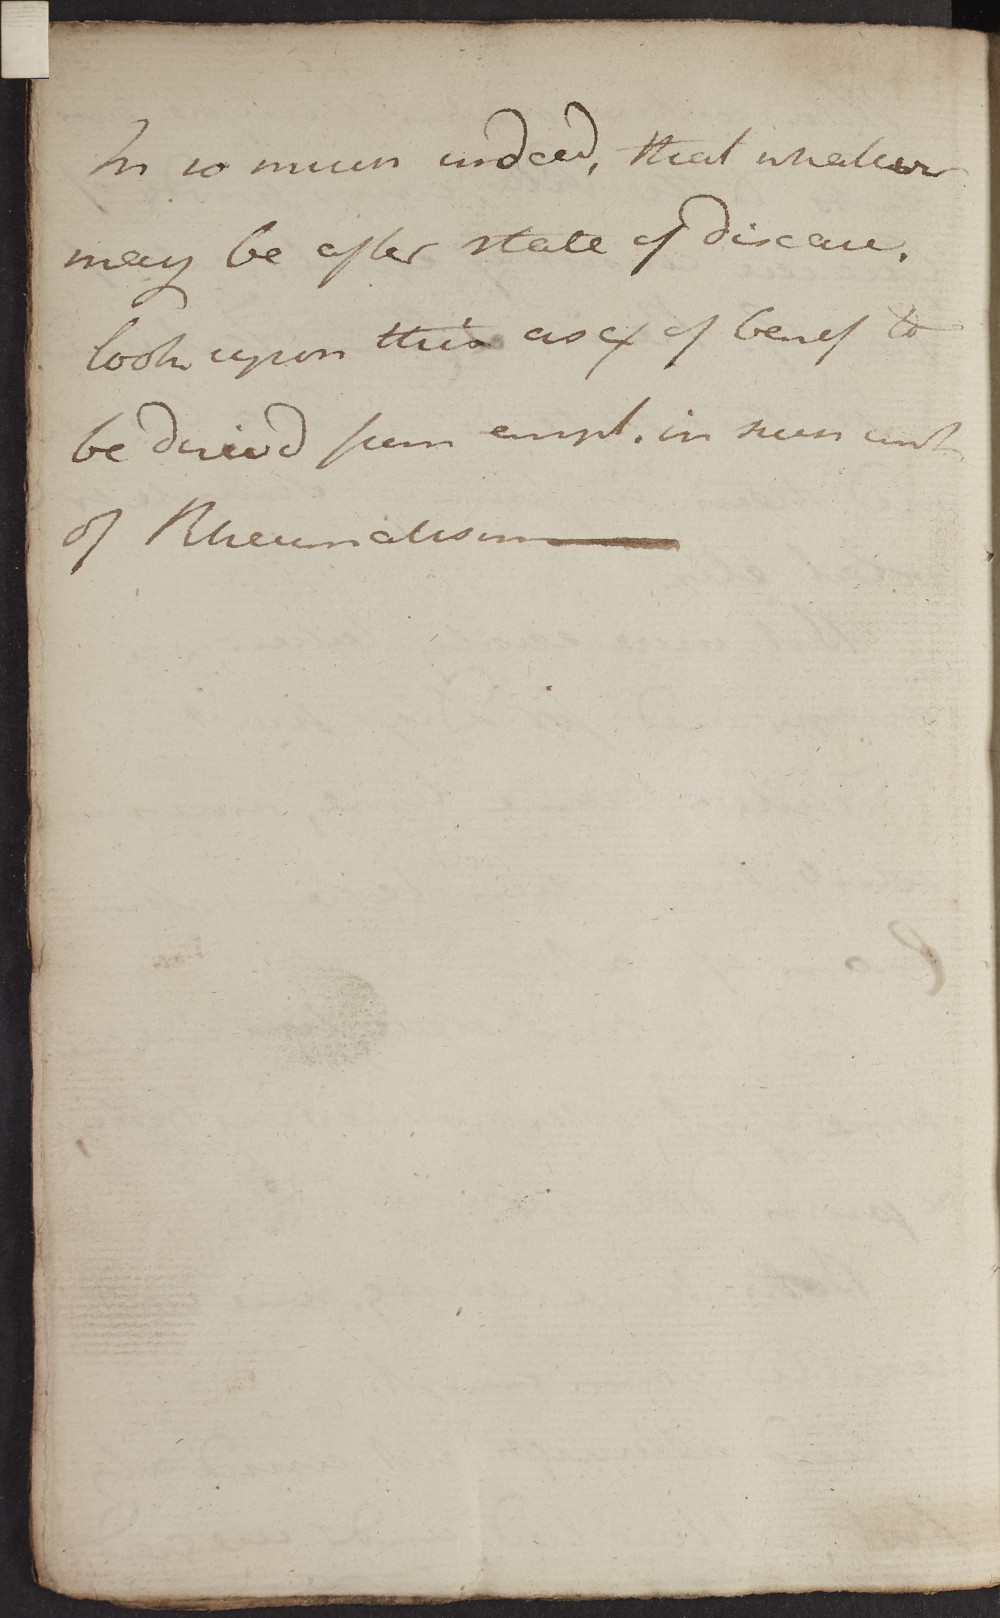 In so much indeed, that whatever
may be after state of disease.
look upon this as ex of benef to
be derived from empl. in
of Rheumatism